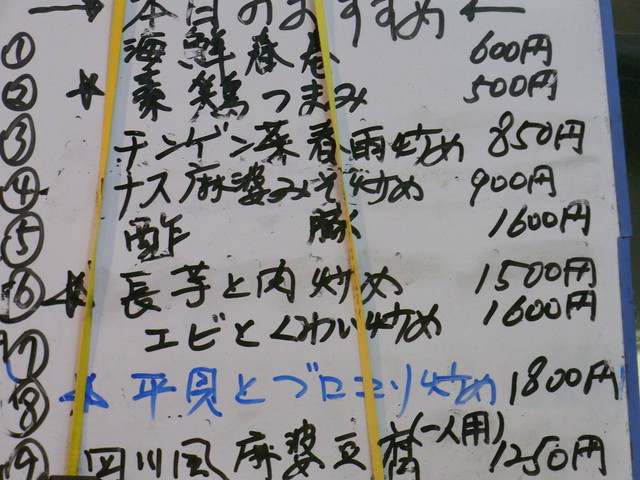 →本日のおすすめ←
① 海鮮春巻 600円
② 素鶏つまみ 500円
③ チンゲン菜春雨炒め 850円
④ ナス麻婆みそ炒め 900円
⑤ 酢豚 1600円
⑥ 長芋と肉炒め 1500円
⑦ エビとくわい炒め 1600円
⑧ 平貝とブロッコリ炒め 1800円
⑨ 四川風麻婆豆腐(一人用) 1250円